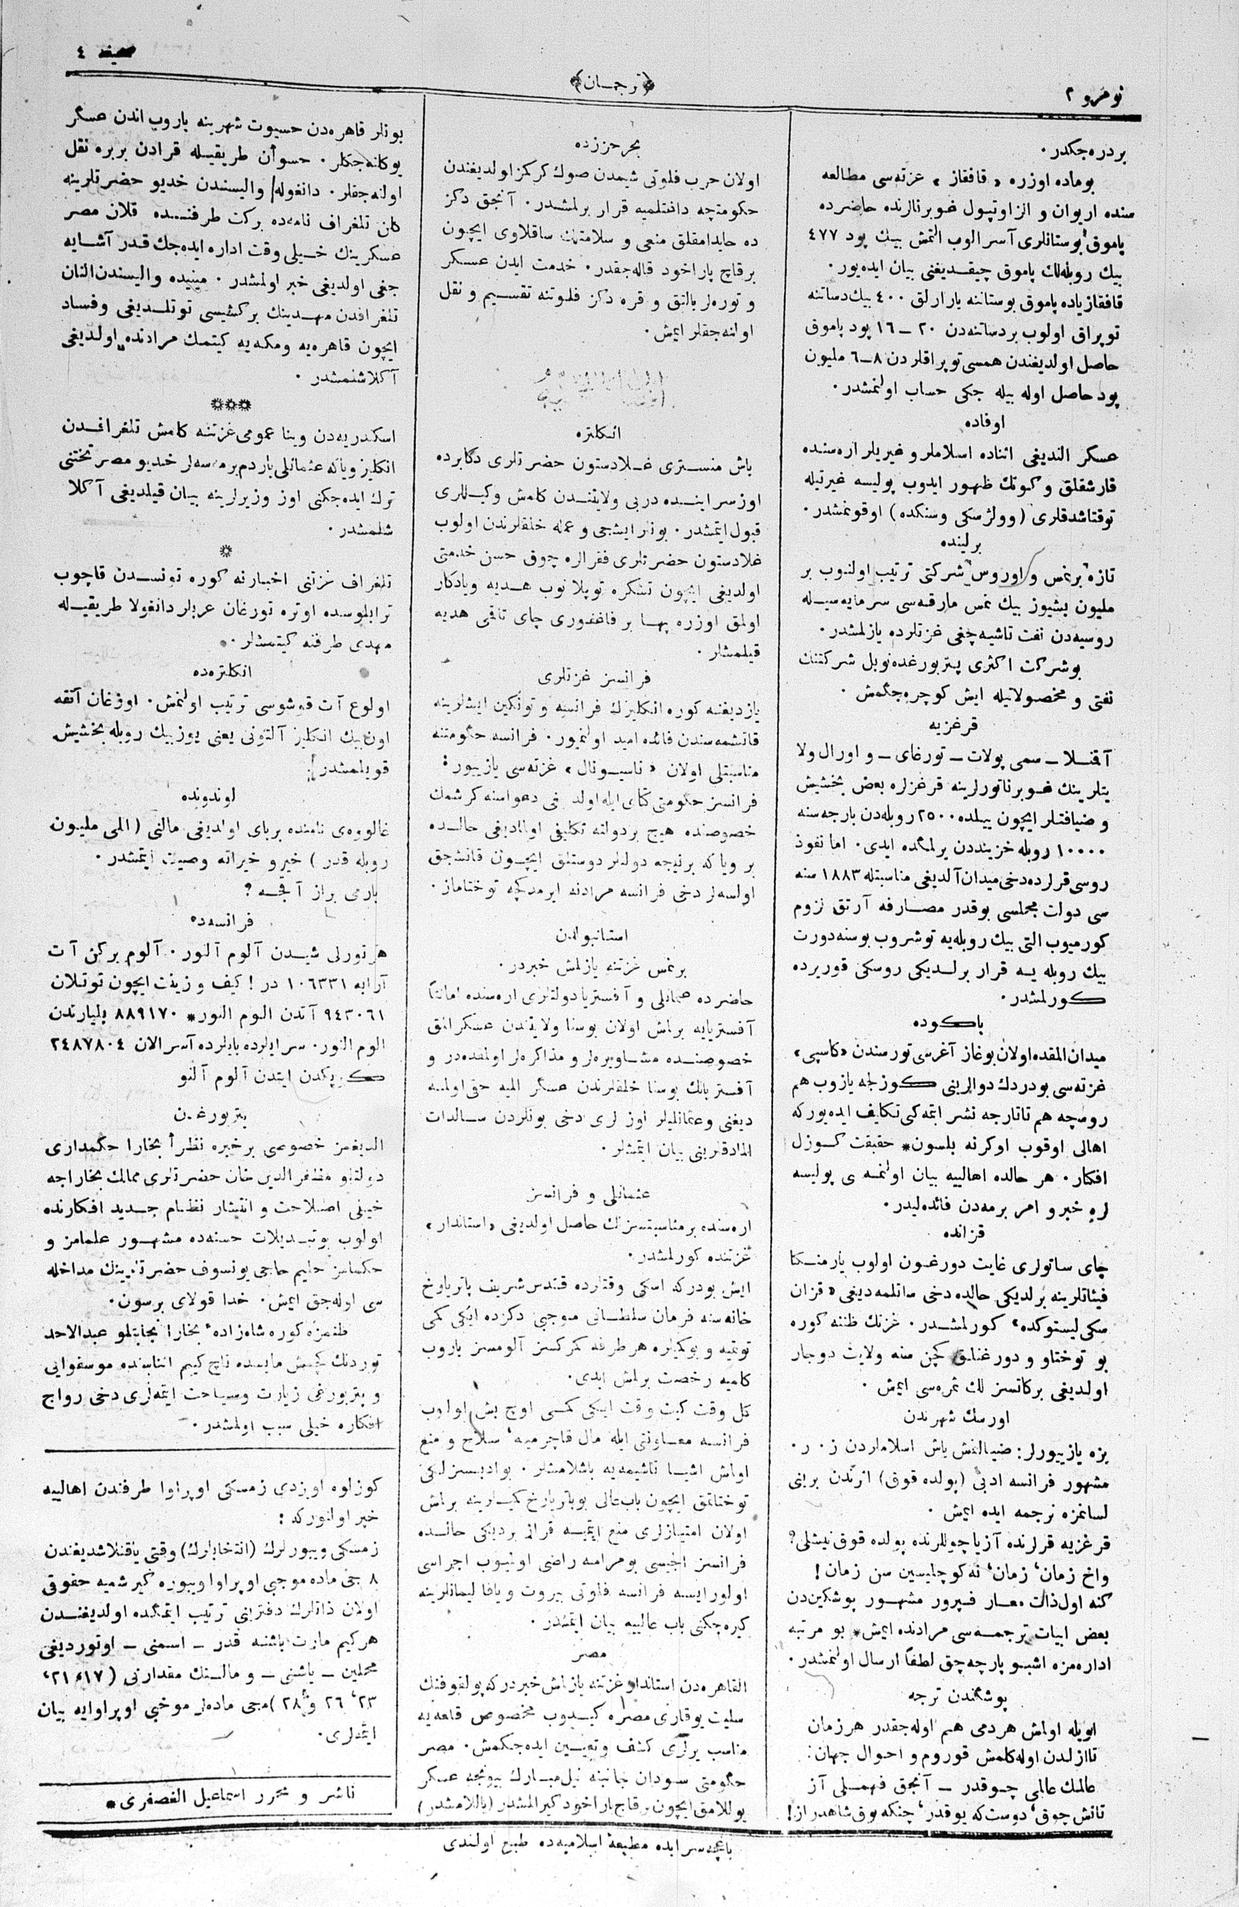 نومرو ٢
﴿ترجمان﴾
صحیفه ٤
بردره‌جکدر.
بوماده اوزره «قافقاز» غزته‌سی مطالعه
سنده اریوان و الزاوتپول غوبرنالرنده حاضرده
پاموق بوستانلری آسرالوب التمش بیك پود ٤٧٧
بیك روبله‌لك پاموق چیقدیغی بیان ایدەیور.
قافقازیاده پاموق بوستاننه یارارلق ٤٠٠ بیك دساتنه
توپراق اولوب بردساتنه‌دن ٢٠–١٦ پود پاموق
حاصل اولدیغندن همسی توپراقلردن ٨–٦ ملیون
پود حاصل اوله بیله جکی حساب اولنمشدر.
اوفاده
عسکر الندیغی اثناده اسلاملر و غیریلر اره‌سنده
قارشقلق و کوتك ظهور ایدوب پولیسه غیرتیله
توقتاشدقلری (وولژسکی وستنکده) اوقونمشدر.
برلینده
تازه برنمس و اوروس شرکتی ترتیب اولنوب بر
ملیون بشیوز بیك نمس مارقه‌سی سرمایه‌سیله
روسیه‌دن نفت تاشیه‌چغی غزتلرده یازلمشدر.
بوشرکت اکثری پتربورغده‌نوبل شرکتنك
نفتی و محصولاتیله ایش کوچره‌جگمش.
قرغزیه
آقنلا – سمی پولات – تورغای – و اورال ولا
یتلرینك غوبرناتورلرینه قرغزلره بعض بخشیش
و ضیافتلر ایچون ییلده ٢٥٠٠ روبله‌دن پارجه‌سنه
١٠٠٠٠ روبله خزینده‌دن برلمگده ایدی. اما نفوذ
روسی قرلرده‌دخی میدان آلدیغی مناسبتله ١٨٨٣ سنه
سی دولت مجلسی بوقدر مصارفه آرتق لزوم
کورمیوب التی بیك روبله‌یه توشروب بوسنه دورت
بیك روبله یه قرار برلدیکی روسکی قوریرده
کورلمشدر.
باکوده
میدان المقده‌اولان بوغاز آغرسی تورسندن «کاسپی»
غزته‌سی بودردك دوالرینی کوزلجه یازوب هم
روسچه هم تاتارجه نشر ایتمه‌کی تکلیف ایده‌یورکه
اهالی اوقوب اوکرنه بلسون* حقیقت کوزل
افکار. هر حالده اهالییه بیان اولنمه ی پولیسه
لره خبر و امر برمه‌دن فائده‌لیدر.
قزانده
چای ساتولری غایت دورغون اولوب یارمنکا
فیئاتلرینه برلدیکی حالده دخی ساتلمه‌دیغی «قزان
سکی لیستوکده» کورلمشدر. غزتك ظننه کوره
بو توختاو و دورغنلق کچن سنه ولایت دوجار
اولدیغی برکاتسز لك ثمره‌سی ایمش.
اورسك شهرندن
بزه یازیبورلر: ضیالنمش یاش اسلاملردن ز. ر.
مشهور فرانسه ادبی (پولده قوق) اثرندن برینی
لسانمزه ترجمه ایده ایمش.
قرغزیه قرلرنده آزیا چوللرنده پولده قوق نیشلی؟
واخ زمان، زمان، نه‌کوچلیسین سن زمان!
کنه اول ذات معارفپرور مشهور پوشکین‌دن
بعض ابیات ترجمه‌سی مرادنده ایمش* بو مرتبه
اداره‌مزه اشبو پارجه‌چق لطفاً ارسال اولنمشدر.
پوشگندن ترجمه
اویله اولماش هردمی هم اوله‌جقدر هرزمان
تاازلدن اوله‌کلمش قوروم و احوال جهان:
عالمك عالمی چوقدر – آنجق فهملی آز
تانش چوق، دوست‌که یوقدر، چنکه یوق شاهدراز!
بحر حزرده
اولان حرب فلوتی شیمدن صوك کرکمز اولدیغندن
حکومتچه داغتلمیه قرار برلمشدر. آنجق دکز
ده حایدامقلق منعی و سلامتلك ساقلاوی ایچون
برقاچ پاراخود قاله‌جقدر. خدمت ایدن عسکر
و توره‌لر بالتق و قره دکز فلوتنه تقسیم و نقل
اولنه‌جقلر ایمش.
انکلتره
باش منستری غلادستون حضرتلری دکابرده
اوز سراینده دربی ولایتندن کلمش وکیللری
قبول ایتمشدر. بونلر ایشجی و عمله خلقلرندن اولوب
غلادستون حضرتلری فقرالره چوق حسن خدمتی
اولدیغی ایچون تشکره توپلانوب هدیه ویادکار
اولمق اوزره بها بر فاغفوری چای تاقمی هدیه
قیلمشلر.
فرانسز غزتلری
یازدیغنه کوره انکلیزك فرانسه و تونکین ایشلرینه
قاتشمه‌سندن فائده امید اولنمیور. فرانسه حکومتنه
مناسبتلی اولان «ناسیونال» غزته‌سی یازیبور:
فرانسز حکومتی کتای ایله اولدیغی دعواسنه کرشمك
خصوصنده هیچ بردولته تکلیفی اولمادیغی حالده
بر ویاکه برنیجه دولتلر دوستلق ایچون قاتشجق
اولسه‌لر دخی فرانسه مرادنه ایرمدکچه توختاماز.
استانبولدن
برنمس غزتنه یازلمش خبردر.
حاضرده عثمانلی و آفستریا دولتلری اره‌سنده امانتا
آفستریایه برلمش اولان بوسنا ولایتندن عسکرالمق
خصوصنده مشاوره‌لر و مذاکره‌لر اولنمقده‌در و
آفستریانك بوسنا خلقلرندن عسگر المیه حقی اولمیه
دیغنی وعثمانلیلر اوزلری دخی بونلردن سالدات
المادقلرینی بیان ایتمشلر.
عثمانلی و فرانسز
اره‌سنده بر مناسبتسزلك حاصل اولدیغی «استاندار»
غزتنده کورلمشدر.
ایش بودرکه اسکی وقتلرده قدس شریف پاتریارخ
خانه‌سنه فرمان سلطانی موجبی دکزده ایکی کمی
توتمیه و بوکمیلره هرطرفه کمرکسز آلومسز یاروب
کلمیه رخصت برلمش ایدی.
کل وقت کیت وقت ایکی کمی اوچ بش اولوب
فرانسه معاونتی ایله مال قاچرمیه، سلاح و منع
اولمش اشیا تاشیمه‌یه باشلامشلر. بوادبسزلکی
توختاتمق ایچون باب‌عالی بوپاتریارخ کمیلرینه برلمش
اولان امتیازلری منع ایتمیه قرار بردیکی حالده
فرانسز الچیسی بومرامه راضی اولمیوب اجراسی
اولورایسه فرانسه فلوتی بیروت و یافا لیمانلرینه
کیره‌جکنی باب عالییه بیان ایتمشدر.
مصر
القاهره‌دن استاندار غزتنه یازلمش خبردرکه پولقوفنك
سلیت یوقاری مصره کیدوب مخصوص قلعه‌یه
مناسب یرلری کشف و تعیین ایده‌جکمش. مصر
حکومتی سودان جانبنه نیل‌مبارك بیونجه عسکر
یوللامق ایچون برقاچ پاراخود کیرالمشدر (یاللامشدر)
بونلر قاهره‌دن حسیوت شهرینه یاروب اندن عسگر
یوکلنه‌جکلر. حسوان طریقیله قرادن بربره نقل
اولنه‌جقلر. دانغوله والیسندن خدیو حضرتلرینه
کلن تلغراف نامه‌ده برکت طرفنده قلان مصر
عسکرینك خیلی وقت اداره ایده‌جك قدر آشایه
جغی اولدیغی خبر اولمشدر. مینیده والیسندن‌النان
تلغرافدن مهدینك برکشیسی توتلدیغی وفساد
ایچون قاهره‌یه ومکه‌یه کیتمك مرادنده اولدیغی
آکلاشلمشدر.
***
اسکندریه‌دن وینا عمومی غزتنه کلمش تلغرافدن
انکلیز ویاکه عثمانلی یاردم برمه‌سه‌لر خدیو مصر تختنی
ترك ایده‌جکنی اوز وزیرلرینه بیان قیلدیغی آکلا
شلمشدر.
*
تلغراف غزتنی اخبارنه کوره تونسدن قاچوب
ترابلوسده اوتره تورغان عربلر دانغولا طریقیله
مهدی طرفنه کیتمشلر.
انکلتره‌ده
اولوغ آت قوشوسی ترتیب اولنمش. اوزغان آتقه
اون بیك انکلیز آلتونی یعنی یوزبیك روبله بخشیش
قویلمشدر!
لوندونده
غالووه‌ی نامنده بربای اولدیغی مالنی (اللی ملیون
روبله قدر) خیر و خیراته وصیت ایتمشدر.
یارمی براز آقچه؟
فرانسه‌ده
هرتورلی شیدن آلوم آلنور. آلوم برکن آت
آرابه ١٠٦٣٣١ در! کیف و زینت ایچون توتلان
٩٤٣٠٦١ آتدن الوم النور* ٨٨٩١٧٠ بلیارتدن
الوم النور. سرایلرده بایلرده آسرالان ٢٤٨٧٨٠٤
کوپکدن ایتدن آلوم آلنو
پتربورغدن
الدیغمز خصوصی برخبره نظرا بخارا حکمداری
دولتلو مظفرالدین خان حضرتلری ممالك بخاراجه
خیلی اصلاحت و انتشار نظام جدید افکارنده
اولوب بوتبدیلات حسنه‌ده مشهور علمامز و
حکمامز حلیم حاجی یونسوف حضرتلرینك مداخله
سی اوله‌جق ایمش. خدا قولای برسون.
ظنمزه کوره شاه‌زاده بخارا نجابتلو عبدالاحد
توره‌نك کچمش مایسده تاج کییم اثناسنده موسقوایی
و پتربورغی زیارت وسیاحت ایتمه‌لری دخی رواج
افکاره خیلی سبب اولمشدر.
کوزلوه اویزدی زمسکی اوپراوا طرفندن اهالییه
خبر اولنورکه:
زمسکی ویبورلرك (انتخابلرك) وقتی یاقنلاشدیغندن
٨ نجی ماده موجبی اوپراوا ویبوره کیرشمیه حقوق
اولان ذاتلرك دفترینی ترتیب ایتمگده اولدیغندن
هرکیم مارت باشنه قدر – اسمنی – اوتوردیغی
محلین – یاشنی – و مالنك مقدارنی (١٧، ٢١،
٢٣، ٢٦ و ٢٨) نجی ماده‌لر موجبی اوپراوایه بیان
ایتمه‌لری.
ناشر و محرر اسماعیل الغصفری*
باغچه‌سرایده مطبعهٔ اسلامیه‌ده طبع اولندی